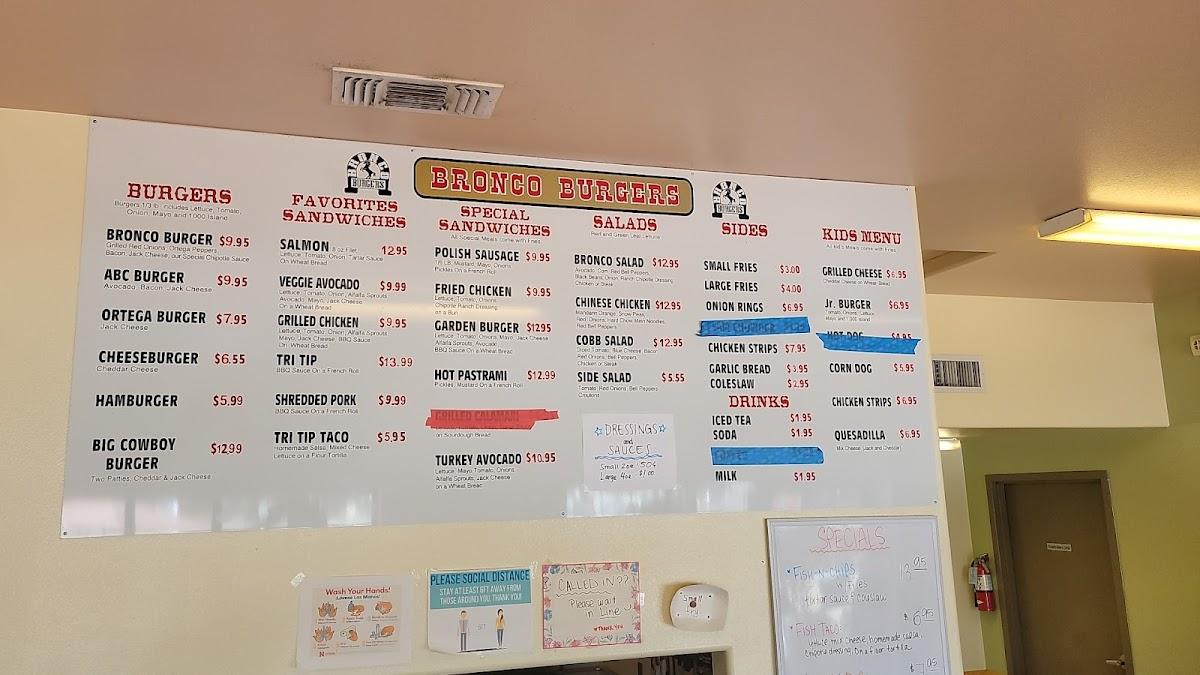 BRONCO BURGERS
BRONCO
BURGERS
BRONCO
BURGERS
BURGERS
Burgers 1/3 lb. includes Lettuce, Tomato,
Onion, Mayo and 1000 Island
BRONCO BURGER $9.95
Grilled Red Onions, Ortega Peppers,
Bacon, Jack Cheese, our Special Chipotle Sauce
ABC BURGER $9.95
Avocado, Bacon, Jack Cheese
ORTEGA BURGER $7.95
Jack Cheese
CHEESEBURGER $6.55
Cheddar Cheese
HAMBURGER $5.99
BIG COWBOY
BURGER $12.99
Two Patties, Cheddar & Jack Cheese
FAVORITES
SANDWICHES
SALMON 8 oz Filet 12.95
Lettuce, Tomato, Onion, Tartar Sauce
On Wheat Bread
VEGGIE AVOCADO $9.99
Lettuce, Tomato, Onion, Alfalfa Sprouts
Avocado, Mayo, Jack Cheese
On a Wheat Bread
GRILLED CHICKEN $9.95
Lettuce, Tomato, Onion, Alfalfa Sprouts
Mayo, Jack Cheese, BBQ Sauce
On Wheat Bread
TRI TIP $13.99
BBQ Sauce On a French Roll
SHREDDED PORK $9.99
BBQ Sauce On a French Roll
TRI TIP TACO $5.95
Homemade Salsa, Mixed Cheese
Lettuce on a Flour Tortilla
SPECIAL
SANDWICHES
All Special Meals come with Fries
POLISH SAUSAGE $9.95
1/3 LB, Mustard, Mayo, Onions
Pickles On a French Roll
FRIED CHICKEN $9.95
Lettuce, Tomato, Onions,
Chipotle Ranch Dressing
on a Bun
GARDEN BURGER $12.95
Lettuce, Tomato, Onions, Mayo, Jack Cheese
Alfalfa Sprouts, Avocado,
BBQ Sauce On a Wheat Bread
HOT PASTRAMI $12.99
Pickles, Mustard On a French Roll
GRILLED CALAMARI
on Sourdough Bread
TURKEY AVOCADO $10.95
Lettuce, Mayo, Tomato, Onions,
Alfalfa Sprouts, Jack Cheese
on a Wheat Bread
SALADS
Red and Green Leaf Lettuce
BRONCO SALAD $12.95
Avocado, Corn, Red Bell Peppers,
Black Beans, Onion, Ranch Chipotle Dressing
Chicken or Steak
CHINESE CHICKEN $12.95
Mandarin Orange, Snow Peas,
Red Onions, Hard Chow Mein Noodles,
Red Bell Peppers
COBB SALAD $12.95
Diced Tomato, Blue Cheese, Bacon
Red Onions, Bell Peppers,
Chicken or Steak
SIDE SALAD $5.55
Tomato, Red Onions, Bell Peppers
Croutons
DRESSINGS
and
SAUCES
Small 2oz 50¢
Large 4oz $1.00
SIDES
SMALL FRIES $3.00
LARGE FRIES $4.00
ONION RINGS $6.95
CHICKEN STRIPS $7.95
GARLIC BREAD $3.95
COLESLAW $2.95
DRINKS
ICED TEA $1.95
SODA $1.95
MILK $1.95
KIDS MENU
All Kid's Meals come with Fries
GRILLED CHEESE $6.95
Cheddar Cheese on Wheat Bread
Jr. BURGER $6.95
Tomato, Onions, Lettuce
Mayo and 1000 Island
HOT DOG
CORN DOG $5.95
CHICKEN STRIPS $6.95
QUESADILLA $6.95
Mix Cheese (Jack and Cheddar)
Wash Your Hands!
¡Lávese Las Manos!
PLEASE SOCIAL DISTANCE
STAY AT LEAST 6FT AWAY FROM
THOSE AROUND YOU, THANK YOU!
6FT
CALLED IN??
Please wait
in Line
THANK YOU
Small
fry
SPECIALS
FISH-N-CHIPS
w/ Fries
tartar sauce &
FISH TACO:
$6.95